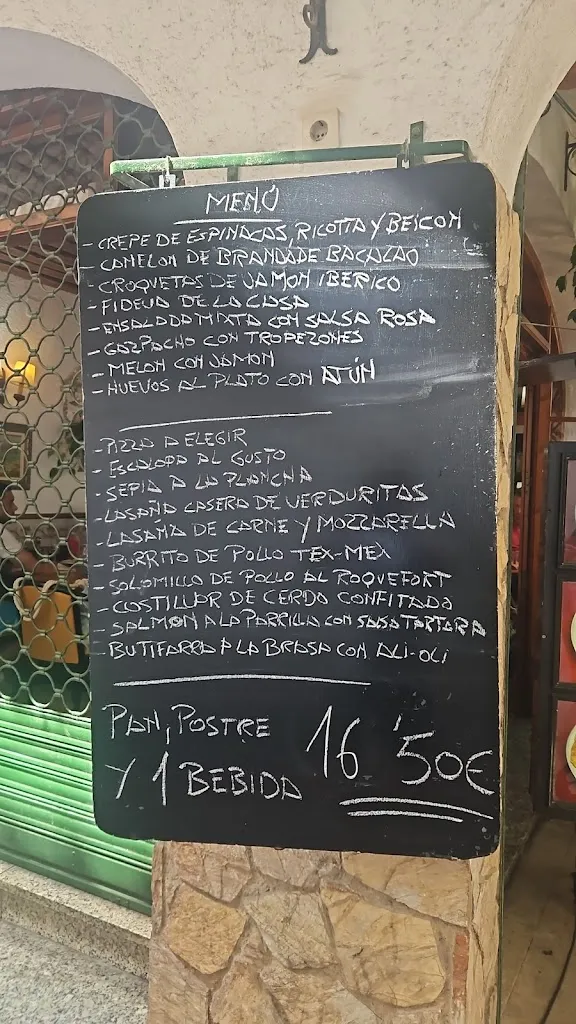 MENÚ
- CREPE DE ESPINACAS, RICOTTA Y BEICON
- CANELON DE BRANDADE BACALAO
- CROQUETAS DE JAMON IBERICO
- FIDEUA DE LA CASA
- ENSALADA MIXTA CON SALSA ROSA
- GAZPACHO CON TROPEZONES
- MELON CON JAMON
- HUEVOS AL PLATO CON ATÚN
- PIZZA A ELEGIR
- ESCALOPA AL GUSTO
- SEPIA A LA PLANCHA
- LASAÑA CASERA DE VERDURITAS
- LASAÑA DE CARNE Y MOZZARELLA
- BURRITO DE POLLO TEX-MEX
- SOLOMILLO DE POLLO AL ROQUEFORT
- COSTILLAR DE CERDO CONFITADO
- SALMON A LA PARRILLA CON SALSA TARTARA
- BUTIFARRA A LA BRASA CON ALI-OLI
PAN, POSTRE
Y 1 BEBIDA 16'50€